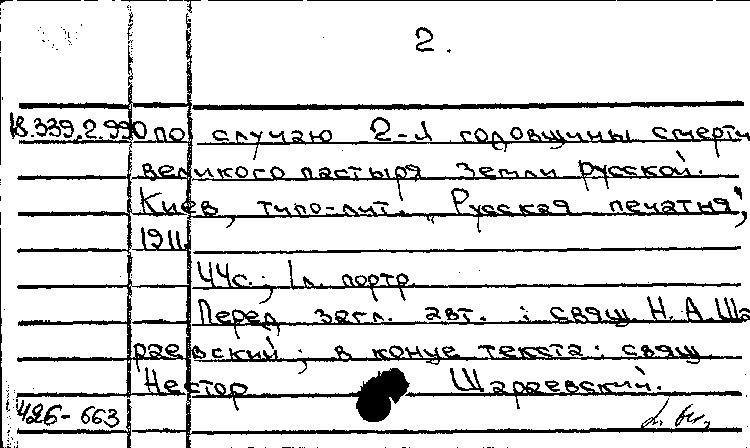 2.
18.339.2.990 по случаю 2-й годовщины смерти
великого пастыря Земли русской.
Киев, типо-лит. "Русская печатня",
1911.
44с.; 1л. портр.
Перед загл. авт.: свящ. Н. А. Ша
раевский; в конце текста: свящ.
Нестор Шараевский.
426-663